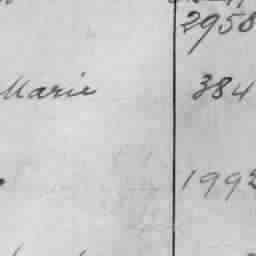 2958
Marie 384
1992